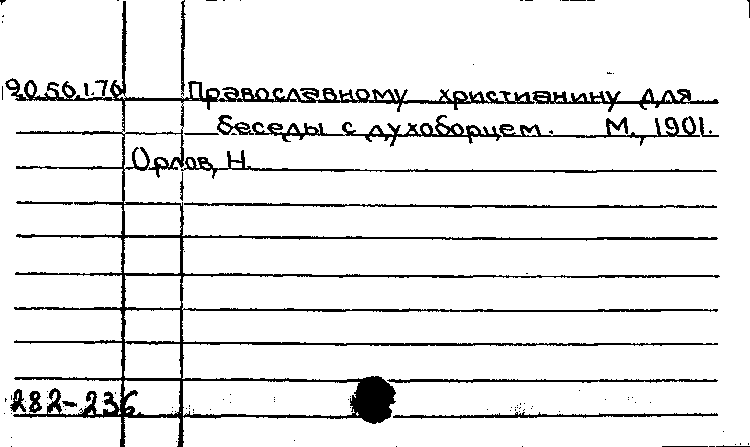 20.56.1.76 Православному христианину для
беседы с духоборцем. М., 1901.
Орлов, Н.
282-236